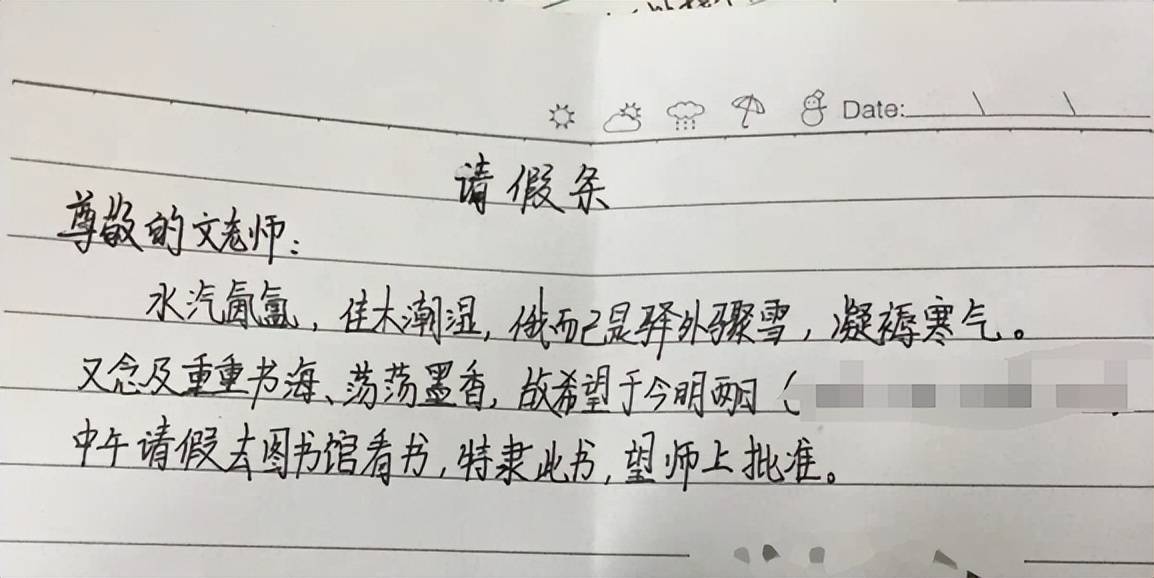 Date:
请假条
尊敬的文老师:
水汽氤氲，佳木潮湿，俄而已是驿外骤雪，凝褥寒气。
又念及重重书海、荡荡墨香，故希望于今明两日（
中午请假去图书馆看书，特隶此书，望师上批准。